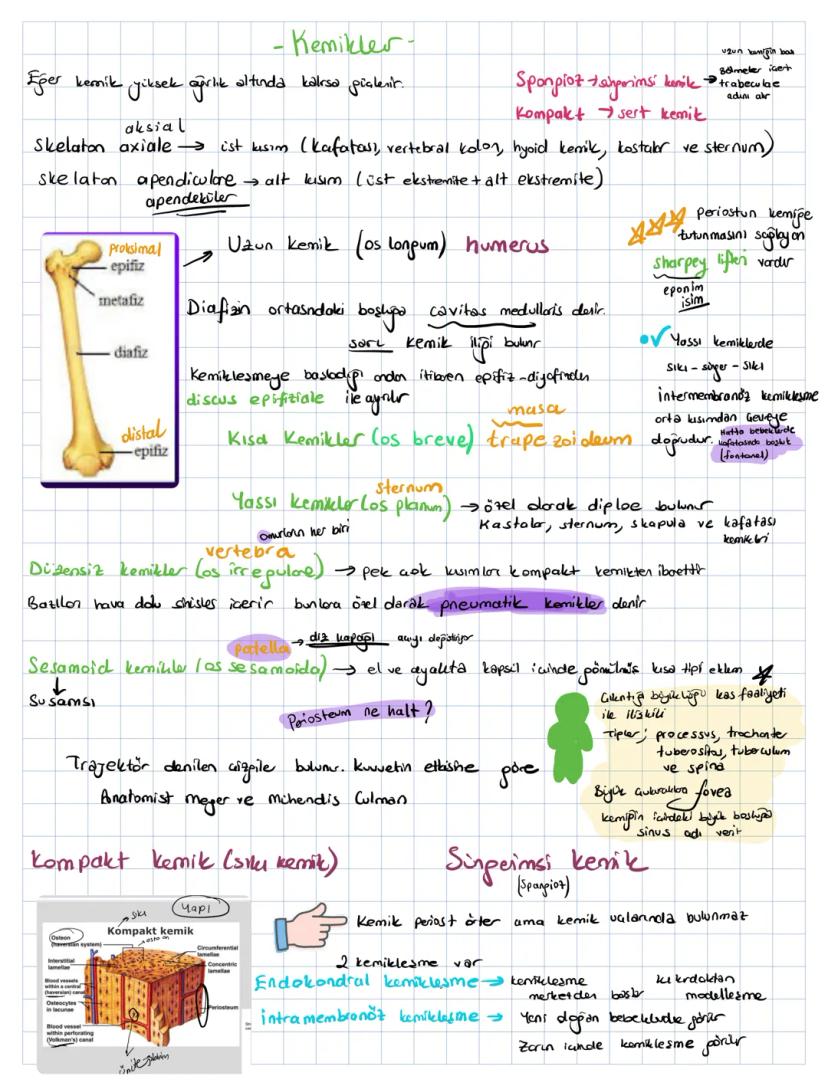 - Kemikler -
Eğer kemik yüksek ağırlık altında kalırsa güçlenir.
Sponpioz → süngerimsi kemik → uzun kemiğin baş
Bölmeler içerir
trabeculae
adını alır
Kompakt → sert kemik
aksial
Skelaton axiale → üst kısım (kafatası, vertebral kolon, hyoid kemik, kostalar ve sternum)
skelaton apendiculare → alt kısım (üst ekstremite + alt ekstremite)
apendeküler
proksimal
epifiz
metafiz
diafiz
distal
epifiz
→ Uzun kemik (os longum) humerus
Diafizin ortasındaki boşluğa cavitas medullaris denir.
sarı kemik iliği bulunur
Kemikleşmeye başladığı andan itibaren epifiz-diyafizden
discus epifiziale ile ayrılır
periostun kemiğe
tutunmasını sağlayan
sharpey lifleri vardır
eponim
isim
Yassı kemiklerde
sıkı - sünger - sıkı
intermembranöz kemikleşme
orta kısımdan çevreye
doğrudur. Hatta bebeklerde
kafatasında boşluk
(fontanel)
masa
Kısa Kemikler (os breve) trapezoideum
sternum
Yassı kemikler (os planum) → özel olarak diploe bulunur
Kastalar, sternum, skapula ve kafatası
kemikleri
omurların her biri
vertebra
Düzensiz kemikler (os irregulare) → pek çok kısımları kompakt kemikten ibarettir
Bazıları hava dolu sinüsler içerir bunlara özel olarak pneumatik kemikler denir
patella → diz kapağı açıyı değiştiriyor
Sesamoid kemikler (os sesamoido) → el ve ayakta kapsül içinde gömülmüş kısa tipi eklem
Susamsı
Periosteum ne halt?
Çıkıntığ büyüklüğü kas faaliyeti
ile ilişkili
Tipler; processus, trochanter
tuberositas, tuberculum
ve spina
Büyük çukurluklara fovea
kemiğin içindeki büyük boşluğa
sinus adı verilir
Trajektör denilen çizgiler bulunur. Kuvvetin etkisine göre
Anatomist meyer ve mühendis Culman
Kompakt kemik (sıkı kemik)
Süngerimsi kemik
(Spanpioz)
Yapı
sıkı
Kompakt kemik
osteon
Osteon
(haversian system)
Interstitial
lamellae
Blood vessels
within a central
(haversian) canal
Osteocytes
in lacunae
Blood vessel
within perforating
(Volkman's) canal
Circumferential
lamellae
Concentric
lamellae
Periosteum
Kemik periost örter ama kemik uçlarında bulunmaz
2 kemikleşme var
Endokondral kemikleşme → kemikleşme kıkırdaktan
merkezden başlar modelleşme
intramembranöz kemikleşme → Yeni doğan bebeklerde görülür
Zarın içinde kemikleşme görülür